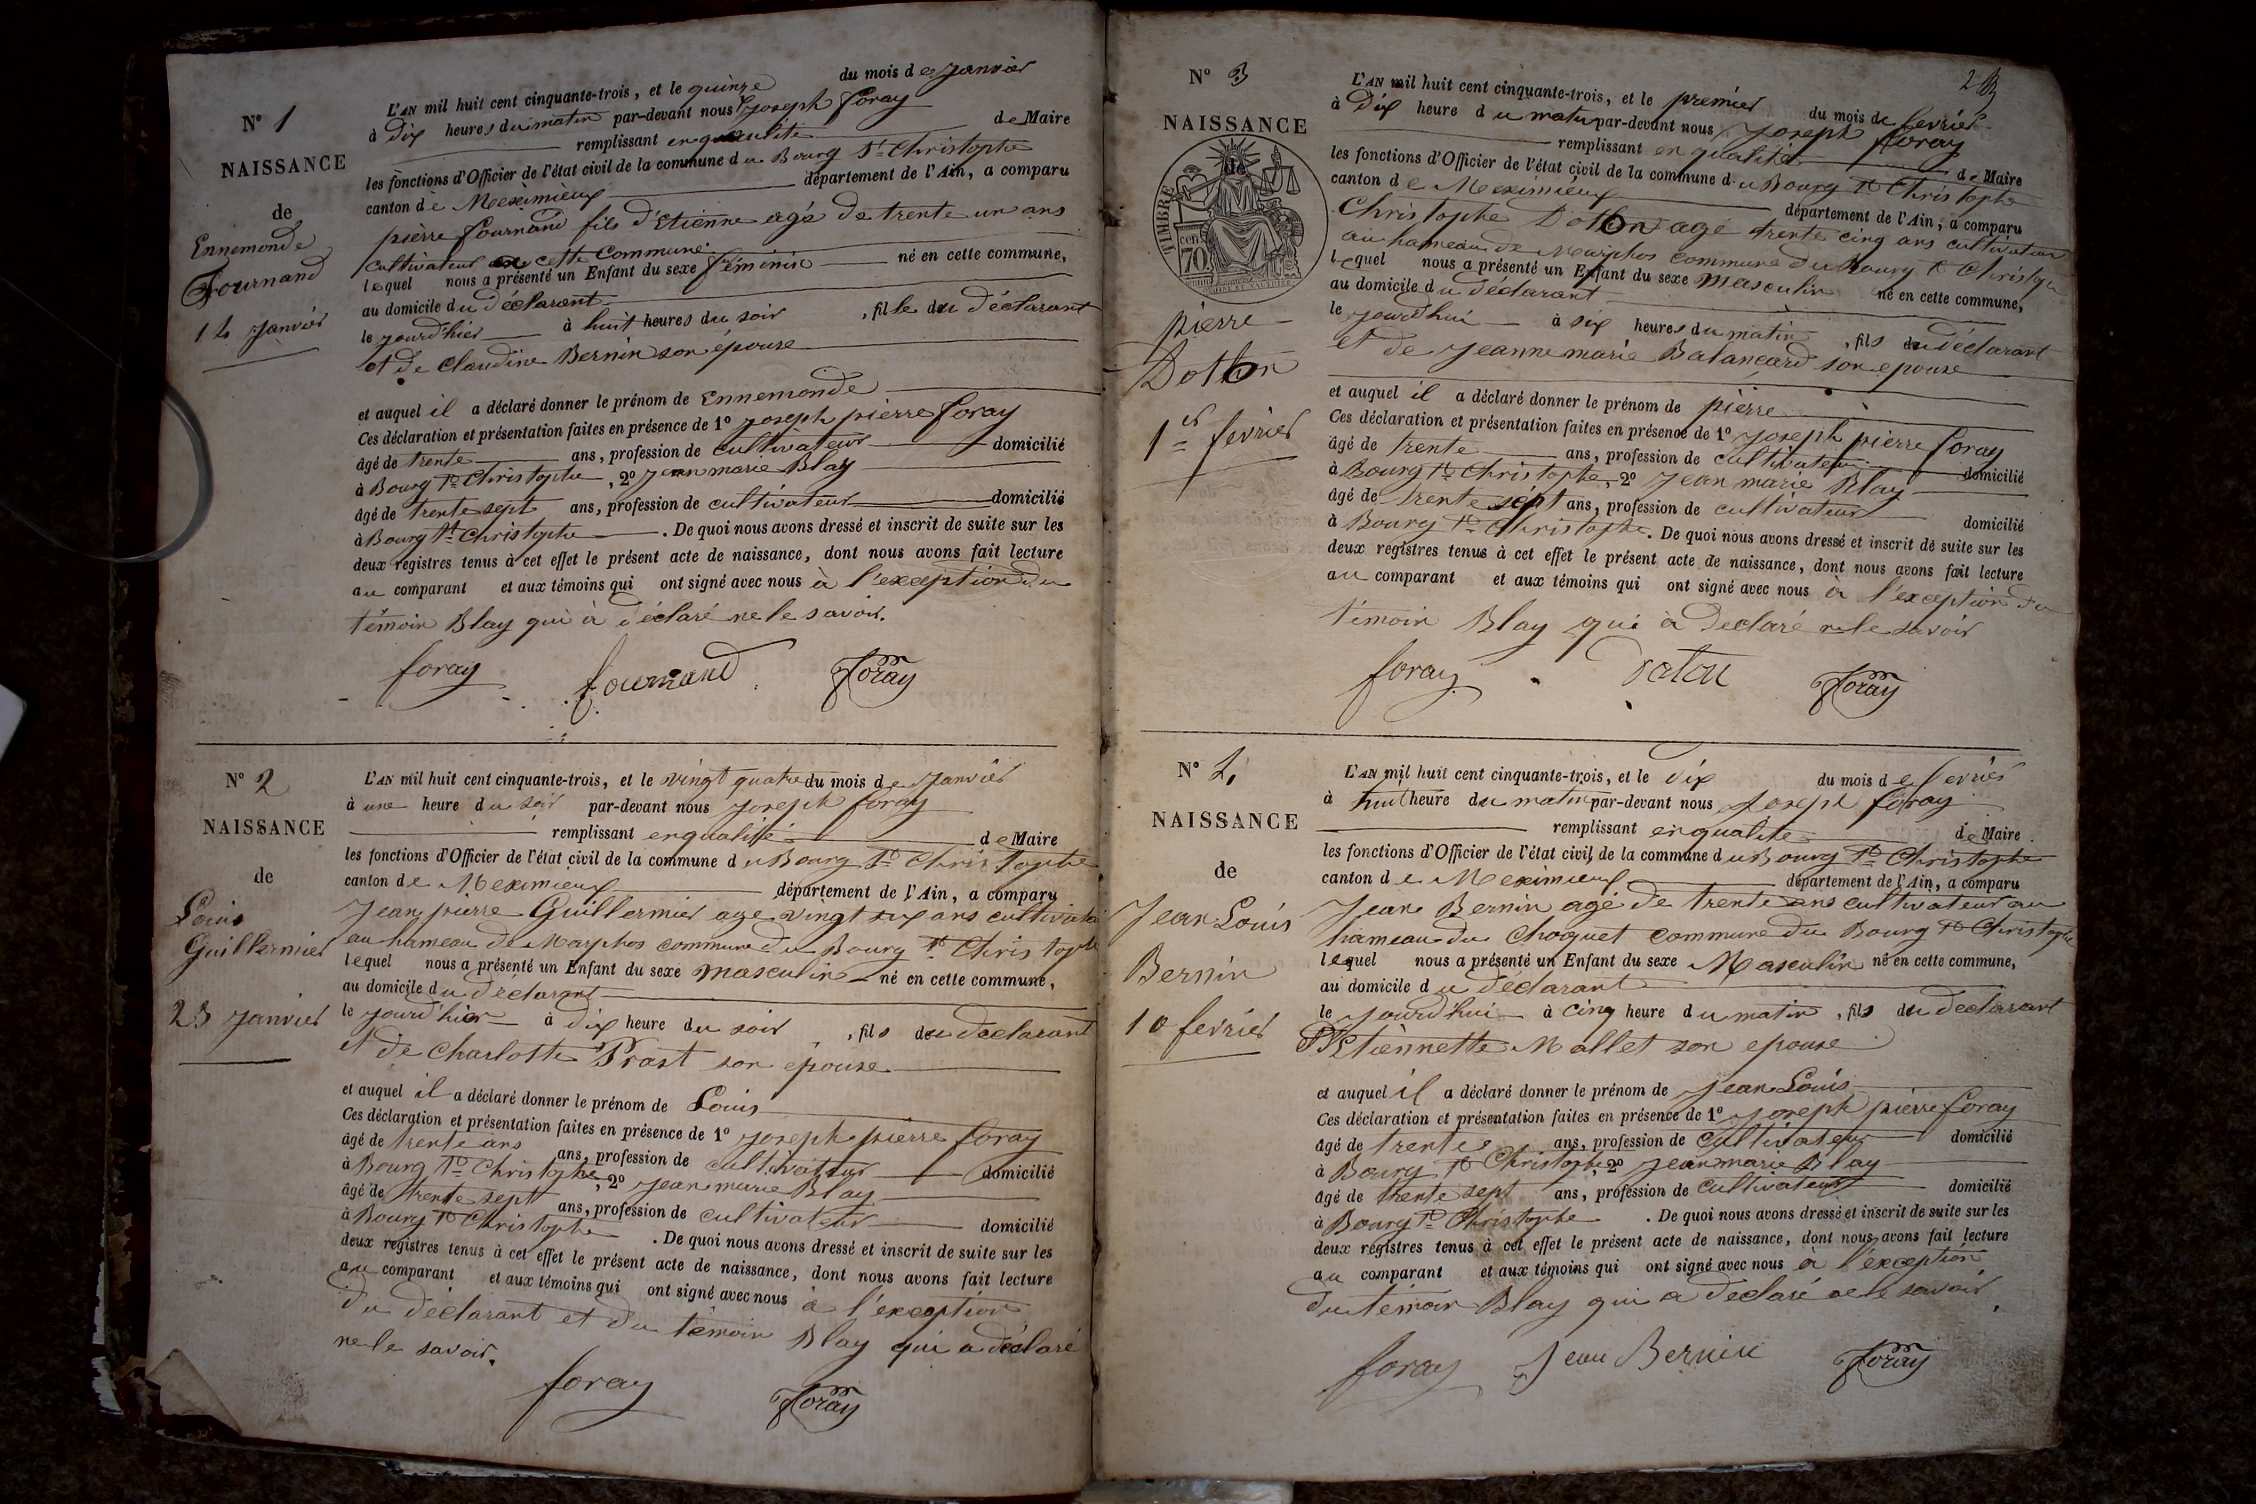 N° 1
NAISSANCE
de
Ennemonde
Fournand
14 janvier
L'AN mil huit cent cinquante-trois, et le quinze du mois de janvier
à dix heures du matin par-devant nous Joseph foray
remplissant en qualité de Maire
les fonctions d'Officier de l'état civil de la commune du Bourg St Christophe
canton de Meximieux département de l'Ain, a comparu
pierre fournand fils d'Etienne agé de trente un ans
cultivateur cette commune
lequel nous a présenté un Enfant du sexe féminin né en cette commune,
au domicile du déclarant
le jourd'hier à huit heures du soir, fille du déclarant
et de claudine Bernin son épouse
et auquel il a déclaré donner le prénom de Ennemonde
Ces déclaration et présentation faites en présence de 1° joseph pierre foray
âgé de trente ans, profession de cultivateur domicilié
à Bourg St Christophe, 2° jean marie Blay
âgé de trente sept ans, profession de cultivateur domicilié
à Bourg St christophe. De quoi nous avons dressé et inscrit de suite sur les
deux registres tenus à cet effet le présent acte de naissance, dont nous avons fait lecture
au comparant et aux témoins qui ont signé avec nous à l'exception du
témoin Blay qui à déclaré ne le savoir.
foray fournand Foray
N° 2
NAISSANCE
de
Louis
Guillermier
23 janvier
L'AN mil huit cent cinquante-trois, et le vingt quatre du mois de janvier
à une heure du soir par-devant nous joseph foray
remplissant en qualité de Maire
les fonctions d'Officier de l'état civil de la commune du Bourg St Christophe
canton de Meximieux département de l'Ain, a comparu
Jean pierre Guillermier age vingt six ans cultivateur
au hameau de Marphos commune du Bourg St Christophe
lequel nous a présenté un Enfant du sexe masculin né en cette commune,
au domicile du déclarant
le jourd'hier à dix heure du soir, fils du declarant
et de charlotte Prost son épouse
et auquel il a déclaré donner le prénom de Louis
Ces déclaration et présentation faites en présence de 1° joseph pierre foray
âgé de trente ans ans, profession de cultivateur domicilié
à Bourg St Christophe, 2° jean marie Blay
âgé de trente sept ans, profession de cultivateur domicilié
à Bourg St Christophe. De quoi nous avons dressé et inscrit de suite sur les
deux registres tenus à cet effet le présent acte de naissance, dont nous avons fait lecture
au comparant et aux témoins qui ont signé avec nous à l'exception
du déclarant et du témoin Blay qui a déclaré
ne le savoir.
foray Foray
2
N° 3
NAISSANCE
TIMBRE
70 cen
pierre
Dothon
1er fevrier
L'AN mil huit cent cinquante-trois, et le premier du mois de fevrier
à Dix heure du matin par-devant nous Joseph foray
remplissant en qualité de Maire
les fonctions d'Officier de l'état civil de la commune du Bourg St Christophe
canton de Meximieux département de l'Ain, a comparu
Christophe Dothon agé trente cinq ans cultivateur
au hameau de Marphos commune du Bourg St Christophe
lequel nous a présenté un Enfant du sexe masculin né en cette commune,
au domicile du déclarant
le jourd'hui à six heures du matin, fils du déclarant
et de jeanne marie Balancard son epouse
et auquel il a déclaré donner le prénom de pierre
Ces déclaration et présentation faites en présence de 1° joseph pierre foray
âgé de trente ans, profession de cultivateur domicilié
à Bourg St Christophe, 2° jean marie Blay
âgé de trente sept ans, profession de cultivateur domicilié
à Bourg St Christophe. De quoi nous avons dressé et inscrit de suite sur les
deux registres tenus à cet effet le présent acte de naissance, dont nous avons fait lecture
au comparant et aux témoins qui ont signé avec nous à l'exception du
témoin Blay qui à declaré ne le savoir
foray Foray
N° 4
NAISSANCE
de
Jean Louis
Bernin
10 fevrier
L'AN mil huit cent cinquante-trois, et le dix du mois de fevrier
à huit heure du matin par-devant nous Joseph foray
remplissant en qualité de Maire
les fonctions d'Officier de l'état civil de la commune du Bourg St Christophe
canton de Meximieux département de l'Ain, a comparu
Jean Bernin agé de trente ans cultivateur au
hameau du Choquet commune du Bourg St Christophe
lequel nous a présenté un Enfant du sexe Masculin né en cette commune,
au domicile du déclarant
le jourd'hui à cinq heure du matin, fils du declarant
Etiennette Mallet son epouse
et auquel il a déclaré donner le prénom de jean Louis
Ces déclaration et présentation faites en présence de 1° joseph pierre foray
âgé de trente ans, profession de cultivateur domicilié
à Bourg St Christophe, 2° jean marie Blay
âgé de trente sept ans, profession de cultivateur domicilié
à Bourg St Christophe. De quoi nous avons dressé et inscrit de suite sur les
deux registres tenus à cet effet le présent acte de naissance, dont nous avons fait lecture
au comparant et aux témoins qui ont signé avec nous à l'exception
du témoin Blay qui a declaré ne le savoir.
foray Jean Bernin Foray